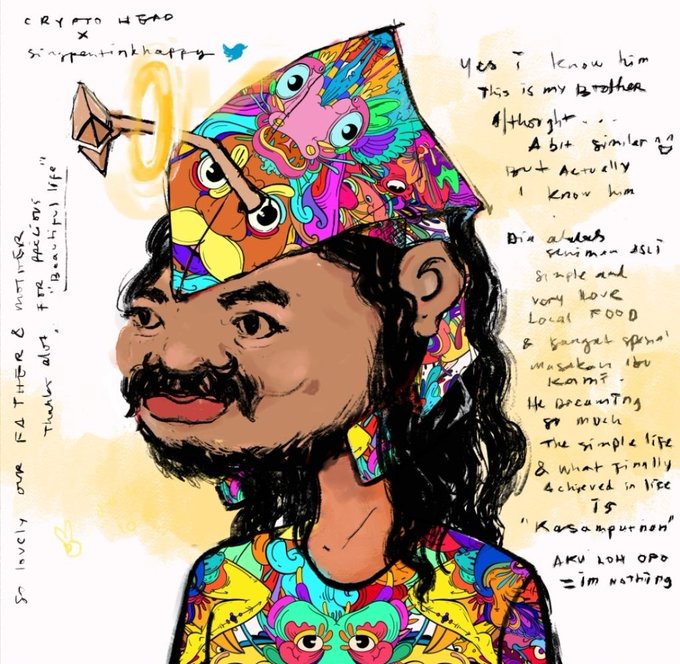 CRYPTO HEAD
X
singpentinkhappy
Yes i know him
This is my Brother
Althought...
A bit similar
But Actually
I know him
Dia adalah
seniman ASLI
simple and
very Love
Local FOOD
& sangat spesial
masakan ibu
kami.
He Dreaming
so much
The simple life
& what Finally
Achieved in life
is
"Kasampurnan"
AKU LOH OPO
= im nothing
So lovely our FATHER & MOTHER
Thanks alot, FOR precious
"Beautiful life"